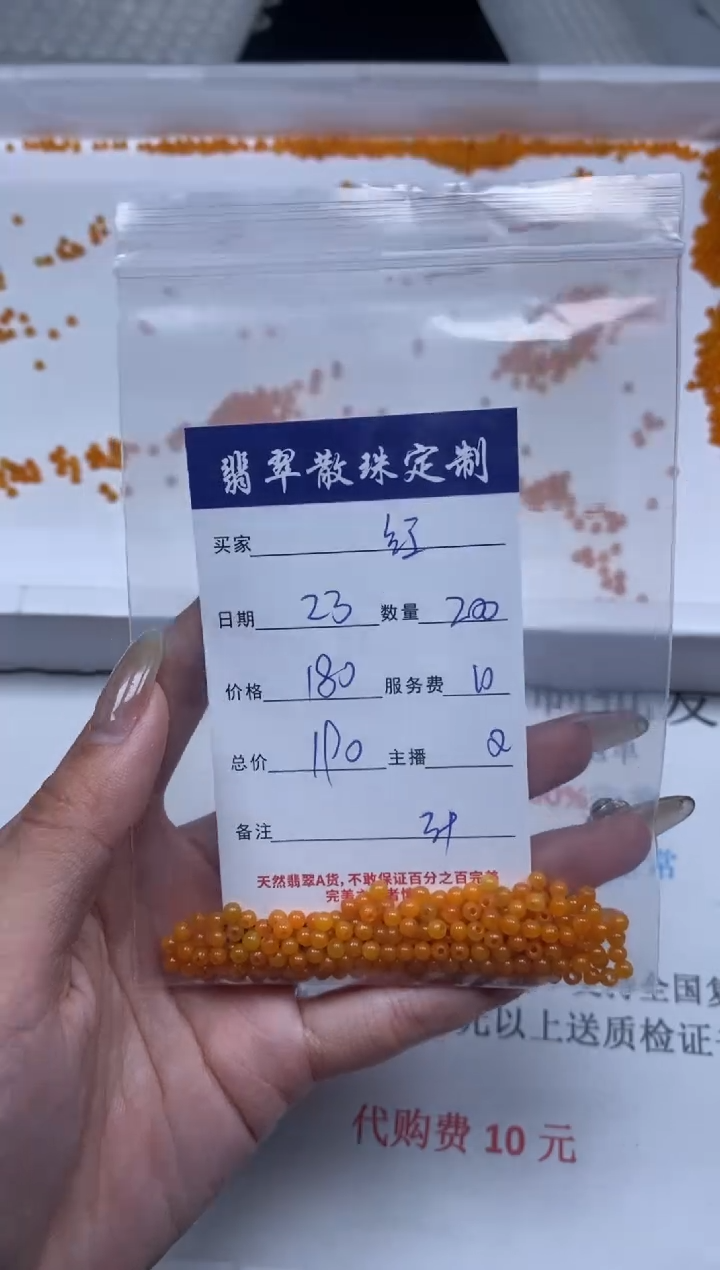 翡翠散珠定制
买家 红
日期 23 数量 200
价格 180 服务费 10
总价 190 主播 Q
备注
天然翡翠A货，不敢保证百分之百完美
完美
全国复
元以上送质检证书
代购费 10 元